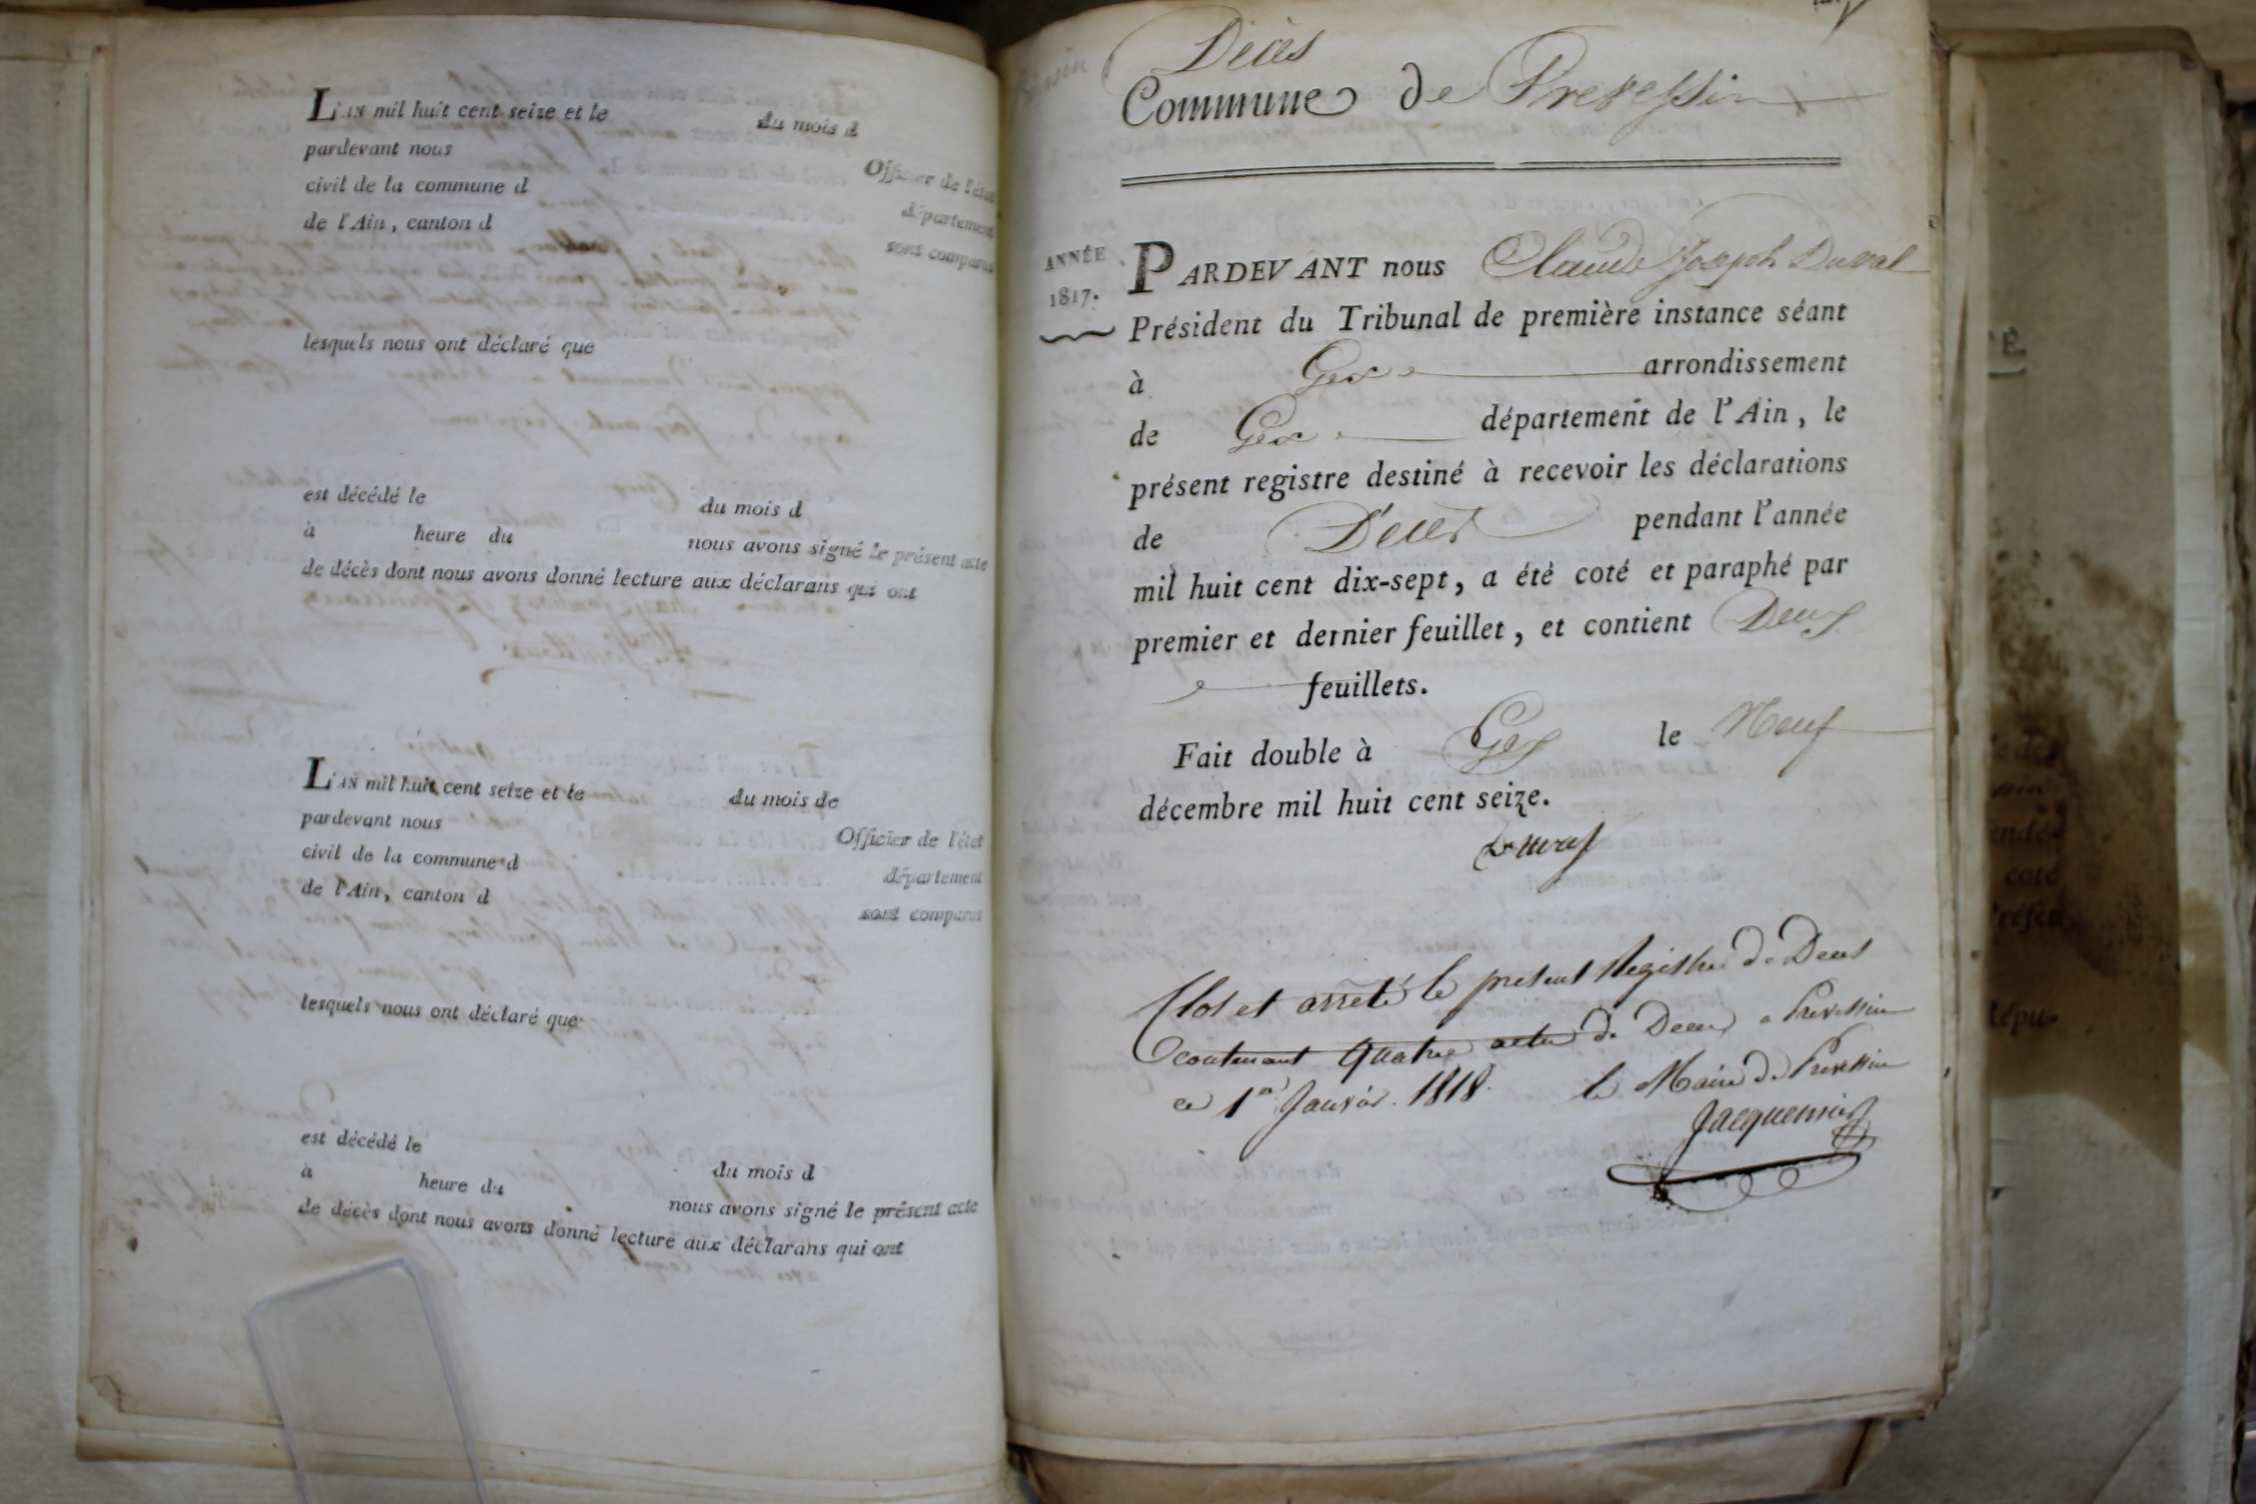 L'AN mil huit cent seize et le du mois d
pardevant nous Officier de l'état
civil de la commune d département
de l'Ain, canton d sont comparus
lesquels nous ont déclaré que
est décédé le du mois d
à heure du nous avons signé le présent acte
de décès dont nous avons donné lecture aux déclarans qui ont
L'AN mil huit cent seize et le du mois de
pardevant nous Officier de l'état
civil de la commune d département
de l'Ain, canton d sont comparus
lesquels nous ont déclaré que
est décédé le du mois d
à heure du nous avons signé le présent acte
de décès dont nous avons donné lecture aux déclarans qui ont
Décès
Commune de Prevessin
ANNÉE
1817.
PARDEVANT nous Claude Joseph Duval
Président du Tribunal de première instance séant
à Gex arrondissement
de Gex département de l'Ain, le
présent registre destiné à recevoir les déclarations
de Décès pendant l'année
mil huit cent dix-sept, a été coté et paraphé par
premier et dernier feuillet, et contient Deux
feuillets.
Fait double à Gex le Neuf
décembre mil huit cent seize.
Duval
Clos et arreté le present Registre de Deces
contenant quatre actes de Deces a Prevessin
ce 1er Janvier 1818. le Maire de Prevessin
Jacquemier